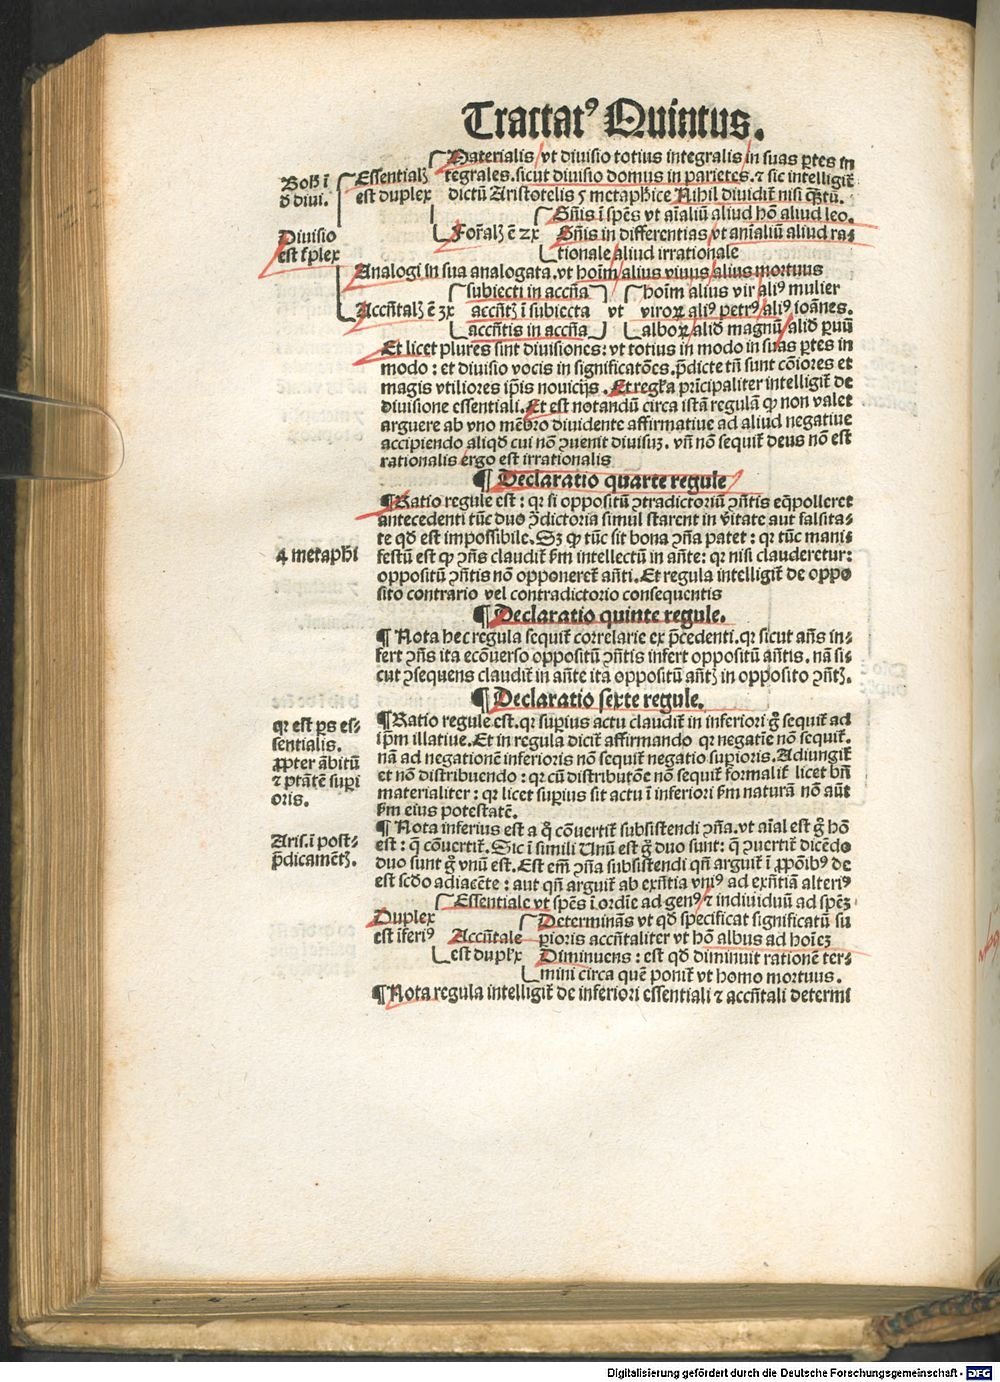 Tractatꝰ Quintus.
Materialis vt diuisio totius integralis in suas ꝑtes in
tegrales. sicut diuisio domus in parietes. ⁊ sic intelligit̄
Essentialꝭ
est duplex
dictū Aristotelis 5 metaphice Nihil diuidit̄ nisi
Boh ī
diui.
Gn̄is ī sp̄es vt aīaliū aliud hō aliud leo.
Gn̄is in differentias vt aīaliū aliud ra⸗
tionale aliud irrationale
For̄alꝭ ē 2x
Diuisio
est t̄plex
Analogi in sua analogata. vt hoīm alius viuus alius mortuus
Accn̄talꝭ ē 3x
subiecti in accn̄a
accn̄tꝭ ī subiecta
accn̄tis in accn̄a
vt
hoīm alius vir aliꝰ mulier
viroꝝ aliꝰ petrꝰ aliꝰ ioānes.
alboꝝ alid̄ magnū alid̄ ꝑuū
Et licet plures sint diuisiones: vt totius in modo in suas ꝑtes in
modo: et diuisio vocis in significatōes. p̄dicte tn̄ sunt cōiores et
magis vtiliores ip̄is nouicijs. Et regl̄a pn̄cipaliter intelligit̄ de
diuisione essentiali. Et est notandū circa istā regulā ꝙ non valet
arguere ab vno mēbro diuidente affirmatiue ad aliud negatiue
accipiendo aliqd̄ cui nō ꝯuenit diuisuꝫ. vn̄ nō sequit̄ deus nō est
rationalis ergo est irrationalis
¶ Declaratio quarte regule
¶ Ratio regule est: qꝛ si oppositū ꝯtradictoriū ꝯn̄tis eq̄polleret
antecedenti tūc duo ꝯ̄dictoria simul starent in v̄itate aut falsita⸗
te qd̄ est impossibile. Sꝫ ꝙ tūc sit bona ꝯn̄a patet: qꝛ tūc mani⸗
festū est ꝙ ꝯn̄s claudit̄ ẜm intellectū in an̄te: qꝛ nisi clauderetur:
oppositū ꝯn̄tis nō opponeret̄ an̄ti. Et regula intelligit̄ de oppo
sito contrario vel contradictorio consequentis
4 metaphi
¶ Declaratio quinte regule.
¶ Nota hec regula sequit̄ correlarie ex p̄cedenti. qꝛ sicut an̄s in⸗
fert ꝯn̄s ita ecōuerso oppositū ꝯn̄tis infert oppositū an̄tis. nā si⸗
cut ꝯsequens claudit̄ in an̄te ita oppositū an̄tꝭ in opposito ꝯn̄tꝭ.
¶ Declaratio sexte regule.
¶ Ratio regule est. qꝛ suꝑius actu claudit̄ in inferiori gͦ sequit̄ ad
ip̄m illatiue. Et in regula dicit̄ affirmando qꝛ negatīe nō sequit̄.
nā ad negationē inferioris nō sequit̄ negatio suꝑioris. Adiungit̄
et nō distribuendo: qꝛ cū distributōe nō sequit̄ formalit̄ licet bn̄
materialiter: qꝛ licet suꝑius sit actu ī inferiori ẜm naturā nō aūt
ẜm eius potestatē.
qꝛ est ꝑs es⸗
sentialis.
ꝓpter ābitū
⁊ ptātē suꝑi
oris.
¶ Nota inferius est a q̄ cōuertit̄ subsistendi ꝯn̄a. vt aīal est gͦ hō
est: q̄ cōuertit̄. Sic ī simili Vnū est gͦ duo sunt: q̄ ꝯuertit̄ dicēdo
duo sunt gͦ vnū est. Est em̄ ꝯn̄a subsistendi qn̄ arguit̄ ī ꝓpōibꝰ de
est scd̄o adiacēte: aut qn̄ arguit̄ ab exn̄tia vniꝰ ad exn̄tiā alteriꝰ
Aris. ī post⸗
p̄dicamētꝭ.
Duplex
est īferiꝰ
Essentiale vt sp̄es ī ordīe ad genꝰ ⁊ indiuiduū ad sp̄eꝫ
Accn̄tale
est duplx̄
Determinās vt qd̄ specificat significatū su
ꝑioris accn̄taliter vt hō albus ad hoīeꝫ
Diminuens: est qd̄ diminuit rationē ter⸗
mini circa quē ponit̄ vt homo mortuus.
¶ Nota regula intelligit̄ de inferiori essentiali ⁊ accn̄tali determi
Digitalisierung gefördert durch die Deutsche Forschungsgemeinschaft - DFG